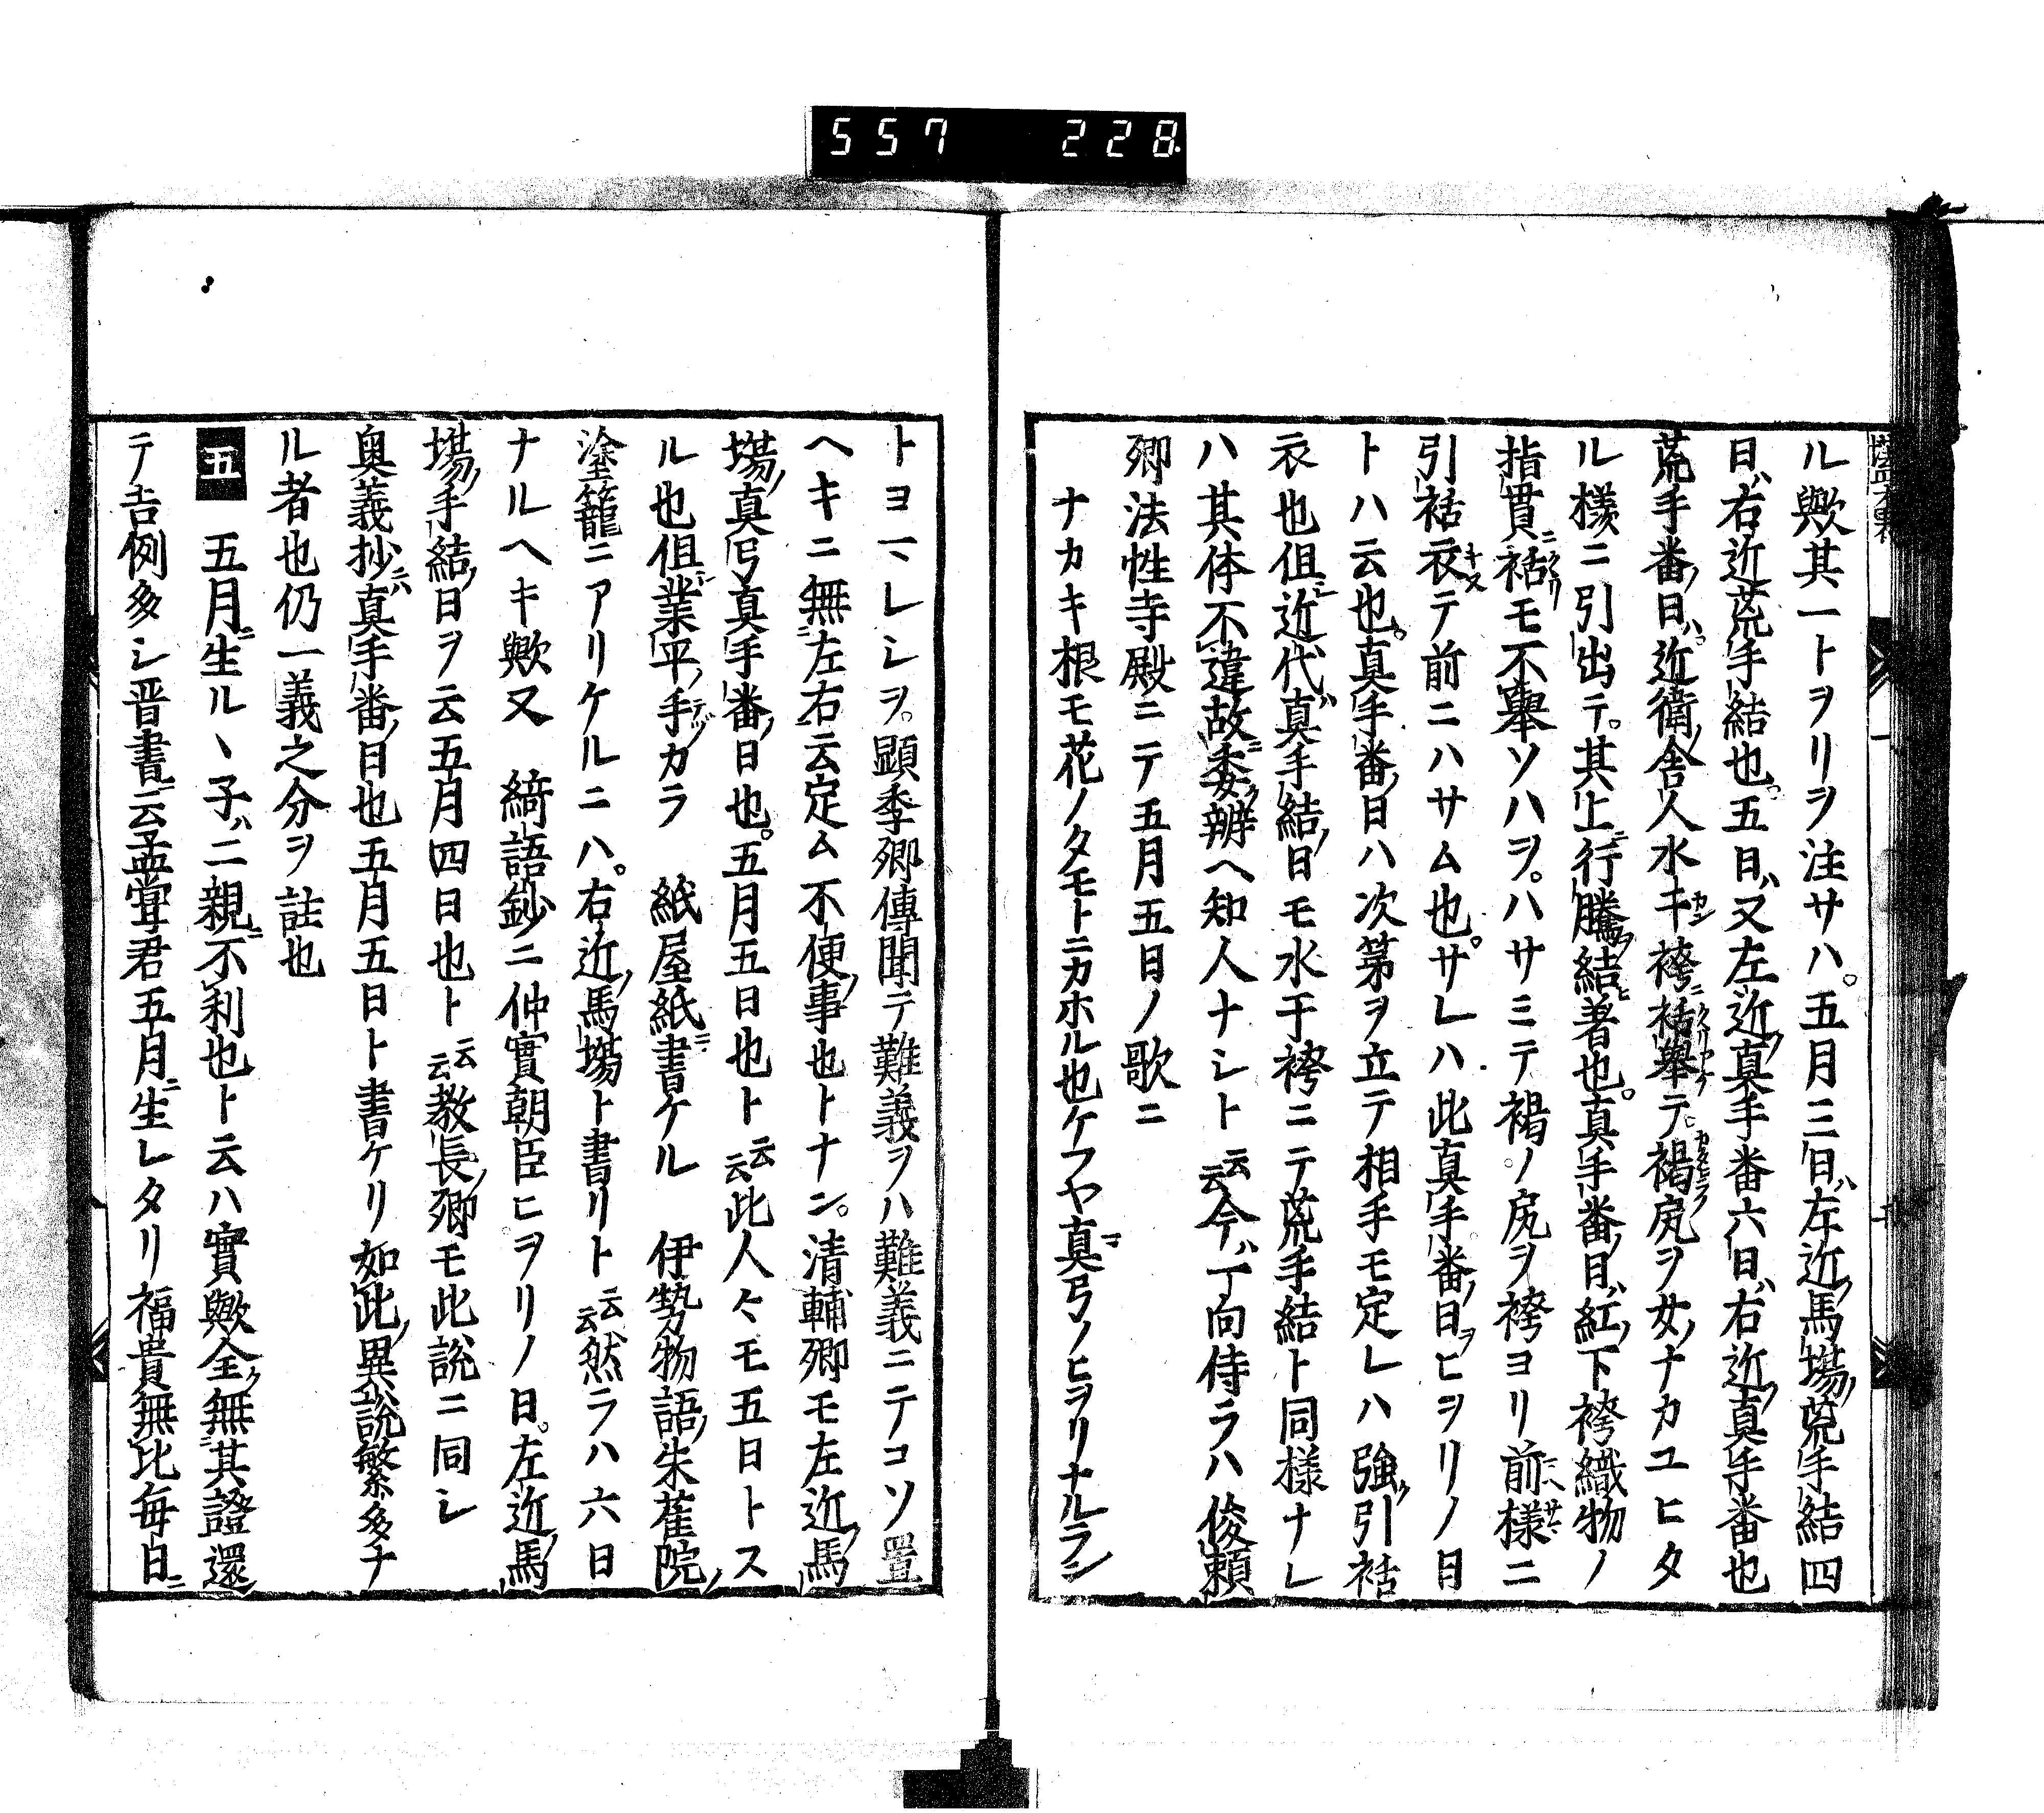 557 228
ル歟其一トヲリヲ注サハ。五月三日ハ左近ノ馬場ノ荒手結四
日ハ右近荒手結也。五日ハ又左近ノ真手番六日ハ右近ノ真手番也
荒手番ノ日ハ。近衛ノ舎人水干袴ニ袺舉テ褐ノ尻ヲ女ノナカユヒタ
ル様ニ引出テ。其上ニ行騰ヲ結ヒ著也。真手番ノ日ハ紅ノ下袴織物ノ
指貫ニ袺モ不舉ソハヲ。ハサミテ褐ノ尻ヲ袴ヨリ前様ニ
引袺衣テ前ニハサム也。サレハ此真手番ノ日ヲヒヲリノ日
トハ云也。真手番ノ日ハ次第ヲ立テ相手モ定レハ強ク引袺
衣也但シ近代ハ真手結ノ日モ水干袴ニテ荒手結ト同様ナレ
ハ其体不違故ニ委ク辨ヘ知人ナシト云云今ハ丁向侍ラハ俊頼
卿法性寺殿ニテ五月五日ノ歌ニ
ナカキ根モ花ノタモトニカホル也ケフヤ真弓ノヒヲリナルラン
トヨマレシヲ。顕季卿傳聞テ難義ヲハ難義ニテコソ置
ヘキニ無左右云定ム不便ノ事也トナン。清輔卿モ左近ノ馬
場ノ真弓真手番ノ日也。五月五日也ト云云此人々モ五日トス
ル也但シ業平ノ手ツカラ 紙屋紙ニ書ケル 伊勢物語ノ朱雀院ノ
塗籠ニアリケルニハ。右近ノ馬場ト書リト云云然ラハ六日
ナルヘキ歟又 綺語鈔ニ仲實朝臣ヒヲリノ日。左近ノ馬
場ノ手結ノ日ヲ云五月四日也ト云云教長ノ卿モ此説ニ同シ
奥義抄ニハ真手番ノ日也五月五日ト書ケリ如此ノ異説繁多ナ
ル者也仍一義之分ヲ註也
五 五月ニ生ルヽ子ハ二親ニ不利也ト云ハ實歟全ク無其證還
テ吉例多シ晋書ニ云孟甞君五月ニ生レタリ福貴無比毎日ニ